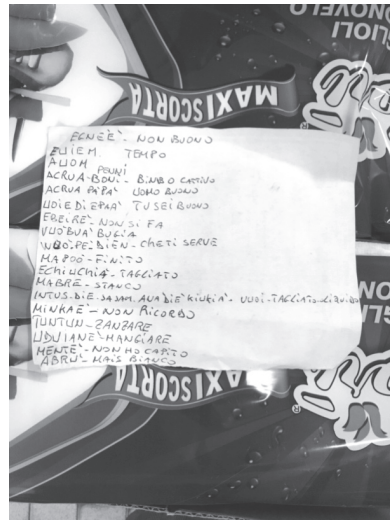 GLIOLI
NOVELO
MAXISCORTA
ECNEÈ - NON BUONO
EUIEM. TEMPO
AUOM PENNI
ACRUA-BONI - BIMBO CATTIVO
ACRUA PAPA' UOMO BUONO
UDIEDIEPAA' TU SEI BUONO
EBEIRE' NON SI FA
VUOBUA' BUGIA
CHE TI SERVE
MAPOO - FINITO
ECHIUCHIA - TAGLIATO
MABRE - STANCO
INTUS-DIE- AUA DIE' KIUKIA' - VUOI - TAGLIATO -
MINKAE' - NON RICORDO
TUNTUN - ZANZARE
UDUIANE' MANGIARE
MENTE' - NON HO CAPITO
ABRU' - MAIS BIANCO
MAXISCORTA
GLIOLI
NO